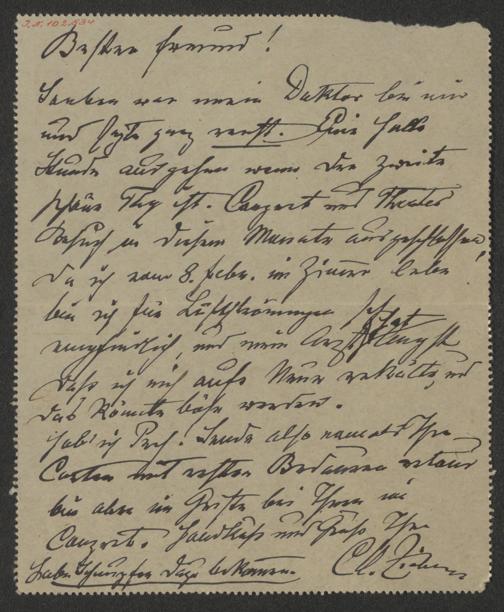 J.N. 102.534
Bester Freund!
Soeben war mein Doktor bei mir
und sagte ganz ernst. Eine halbe
Stunde ausgehen wenn der zweite
schöne Tag ist. Conzert und Theater
Besuch in diesem Monate ausgeschlossen,
da ich vom 8. Febr. im Zimmer lebe
bin ich für Luftströmungen sehr
empfindlich, und mein Arzt hat Angst
daß ich mich aufs Neue erkälte, und
das könnte böse werden.
Hab' ich Pech. Sende also Ihre
Carten mit Bedauern retour
bin aber im Geiste bei Ihnen im
Conzert. Handkuß und Gruß Ihr
Habe Schnupfen dazu bekommen. C. M. Ziehrer